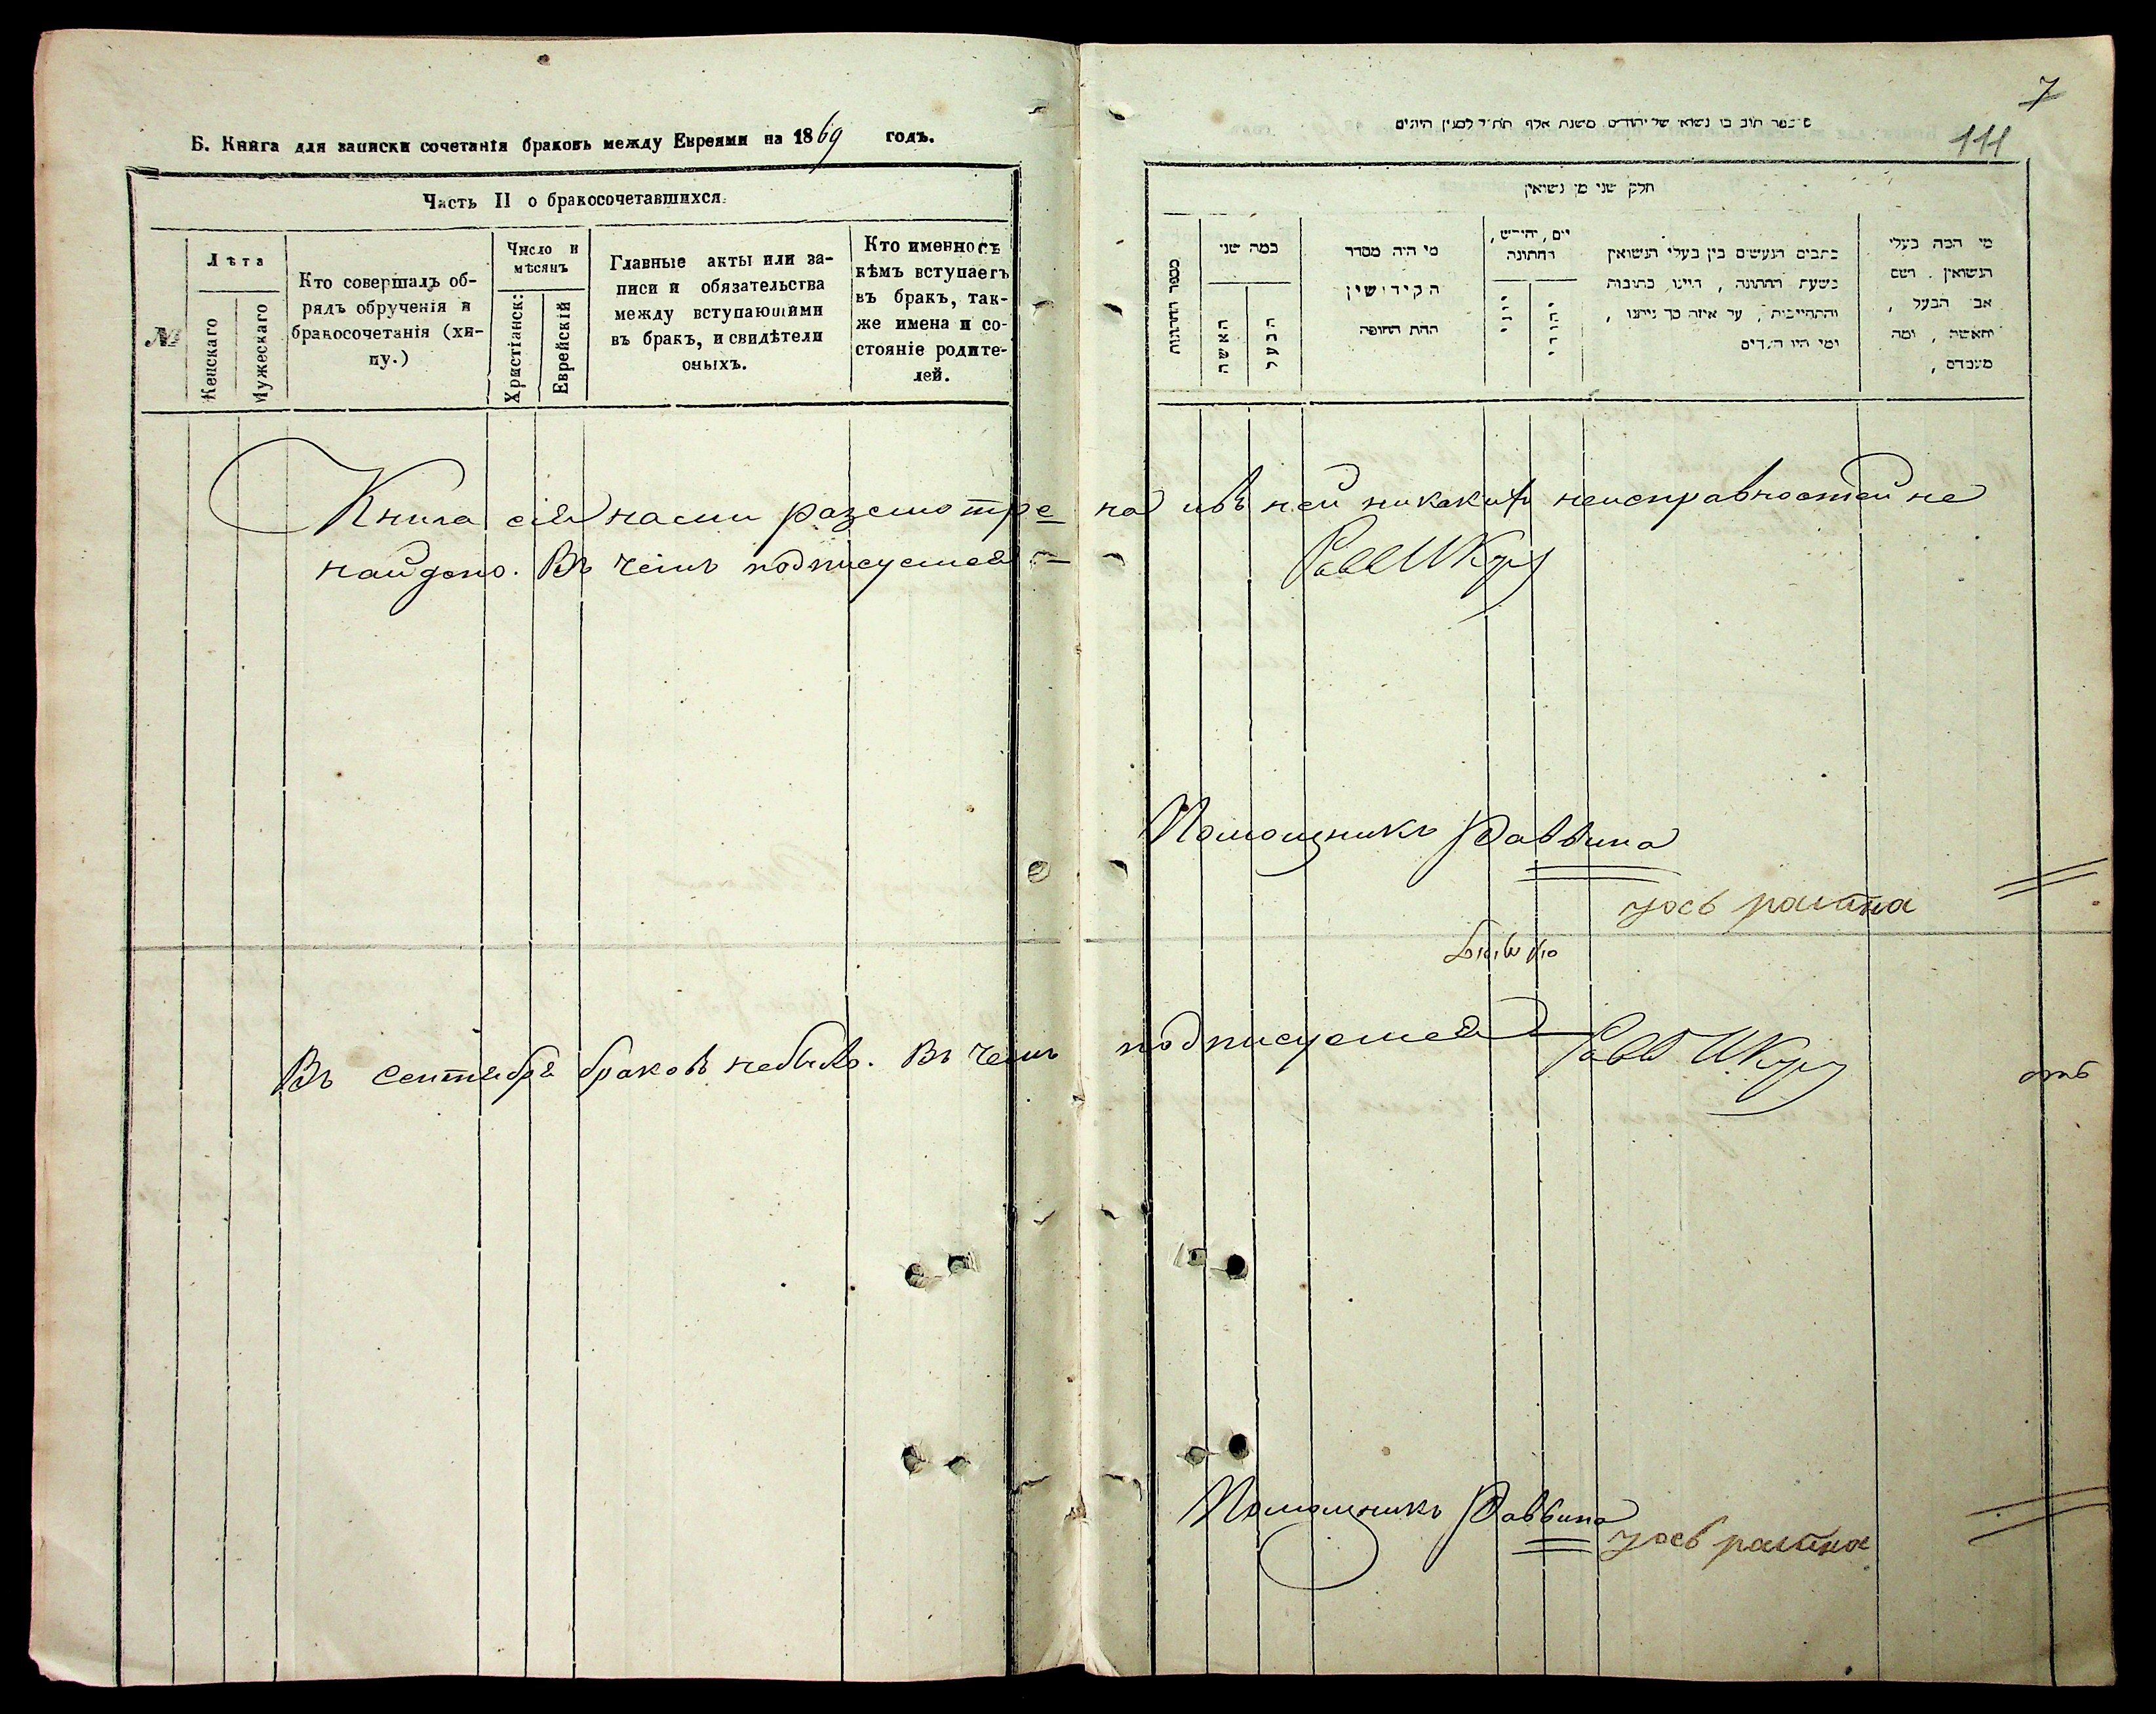 Б. Книга для записки сочетанія браковъ между Евреями на 1869 годъ.
Часть II о бракосочетавшихся.
№
Лѣта
Женскаго
Мужескаго
Кто совершалъ об-
рядъ обрученія и
бракосочетанія (хи-
пу.)
Число и
мѣсяцъ
Христіанск:
Еврейскій
Главные акты или за-
писи и обязательства
между вступающими
въ бракъ, и свидѣтели
оныхъ.
Кто именно съ
кѣмъ вступаетъ
въ бракъ, так-
же имена и со-
стояніе родите-
лей.
7
111
חלק שני מן נשואין
מספר החתונות
כמה שני
האשה
הבעל
מי היה מסדר
הקידושין
תחת החופה
יום, וחודש,
החתונה
יוני
יהודי
כתבים הנעשים בין בעלי הנשואין
בשעת החתונה, היינו כתובות
והתחייבות, על איזה סך ניתנו,
ומי היו העדים
מי המה בעלי
הנשואין, ושם
אבי הבעל,
והאשה, ומה
מעמדם,
Книга сія нами разсмотре на и въ ней никакихъ неисправностей не
найдено. Въ чемъ подписуемся
Помощникъ Раввина
Въ Сентября браковъ небыло. Въ чемъ подписуемся
Помощникъ Раввина